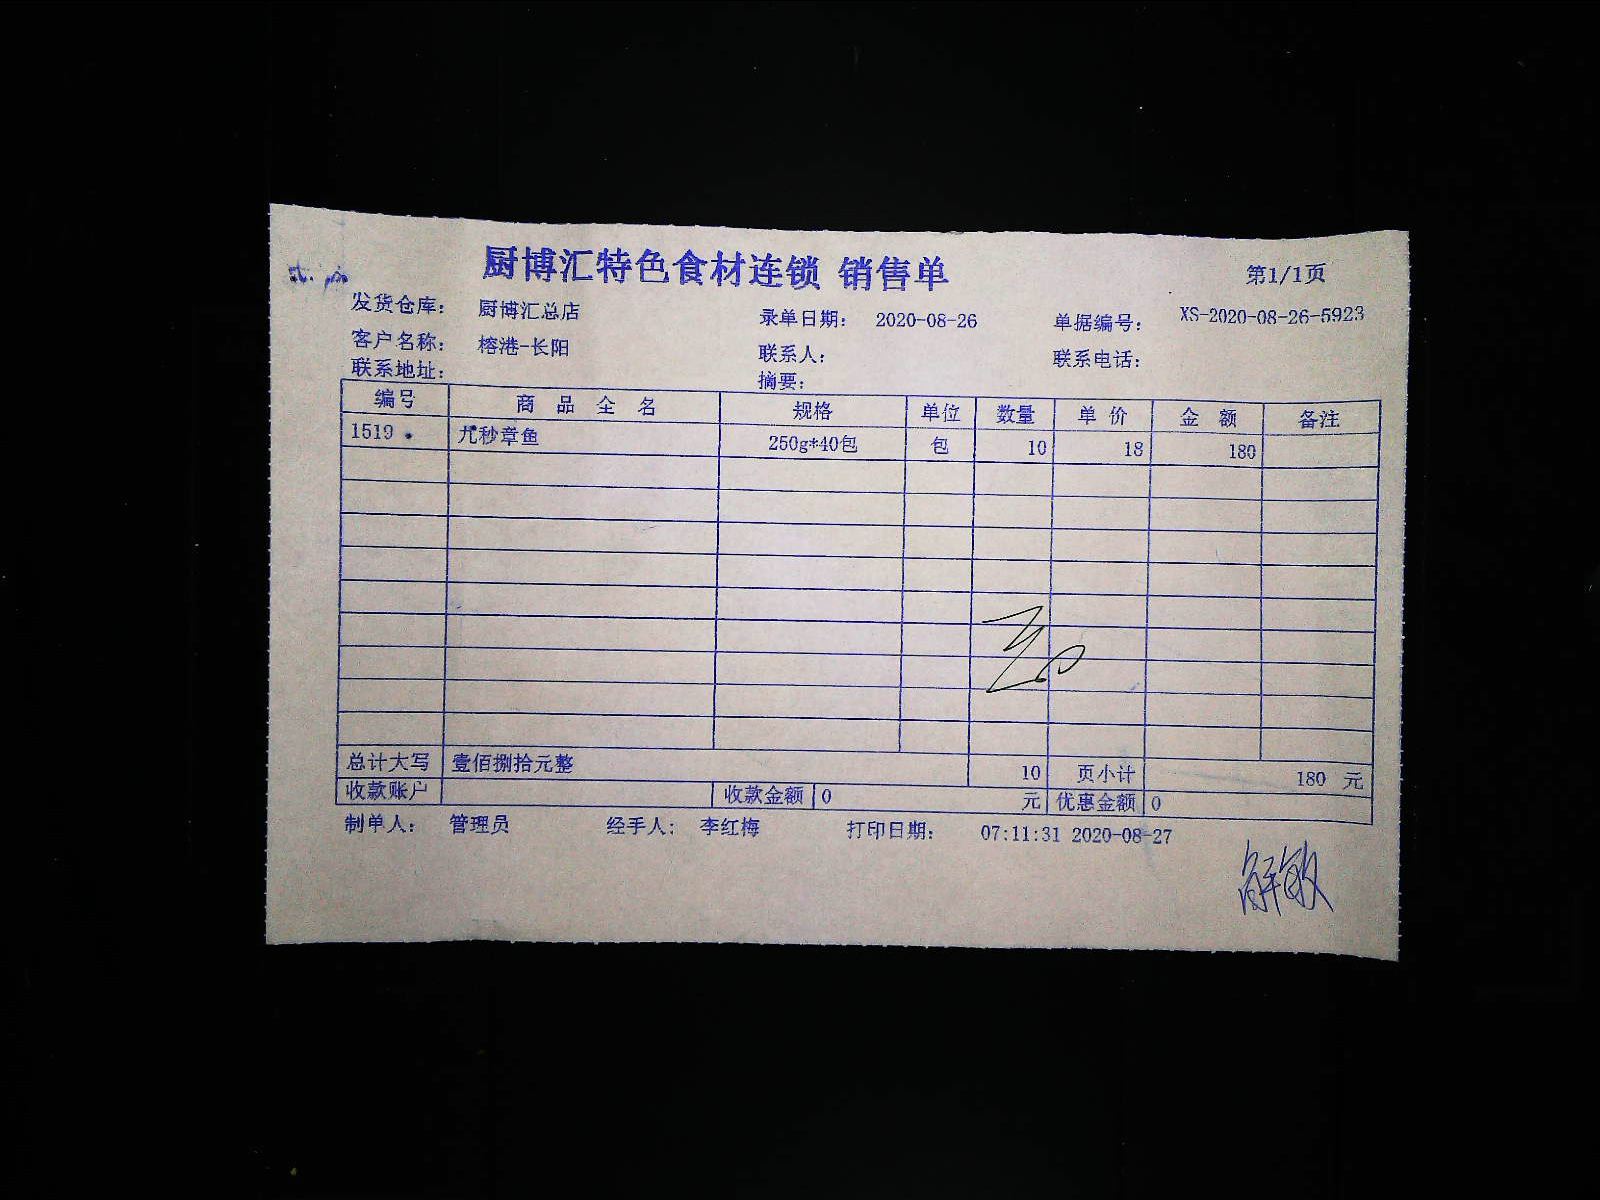 厨博汇特色食材连锁 销售单
第1/1页
发货仓库： 厨博汇总店 录单日期： 2020-08-26 单据编号： XS-2020-08-26-5923
客户名称： 榕港-长阳 联系人： 联系电话：
联系地址： 摘要：
编号 商品全名 规格 单位 数量 单价 金额 备注
1519 九秒章鱼 250g*40包 包 10 18 180
总计大写 壹佰捌拾元整 10 页小计 180 元
收款账户 收款金额 0 元 优惠金额 0
制单人： 管理员 经手人： 李红梅 打印日期： 07:11:31 2020-08-27
解敏